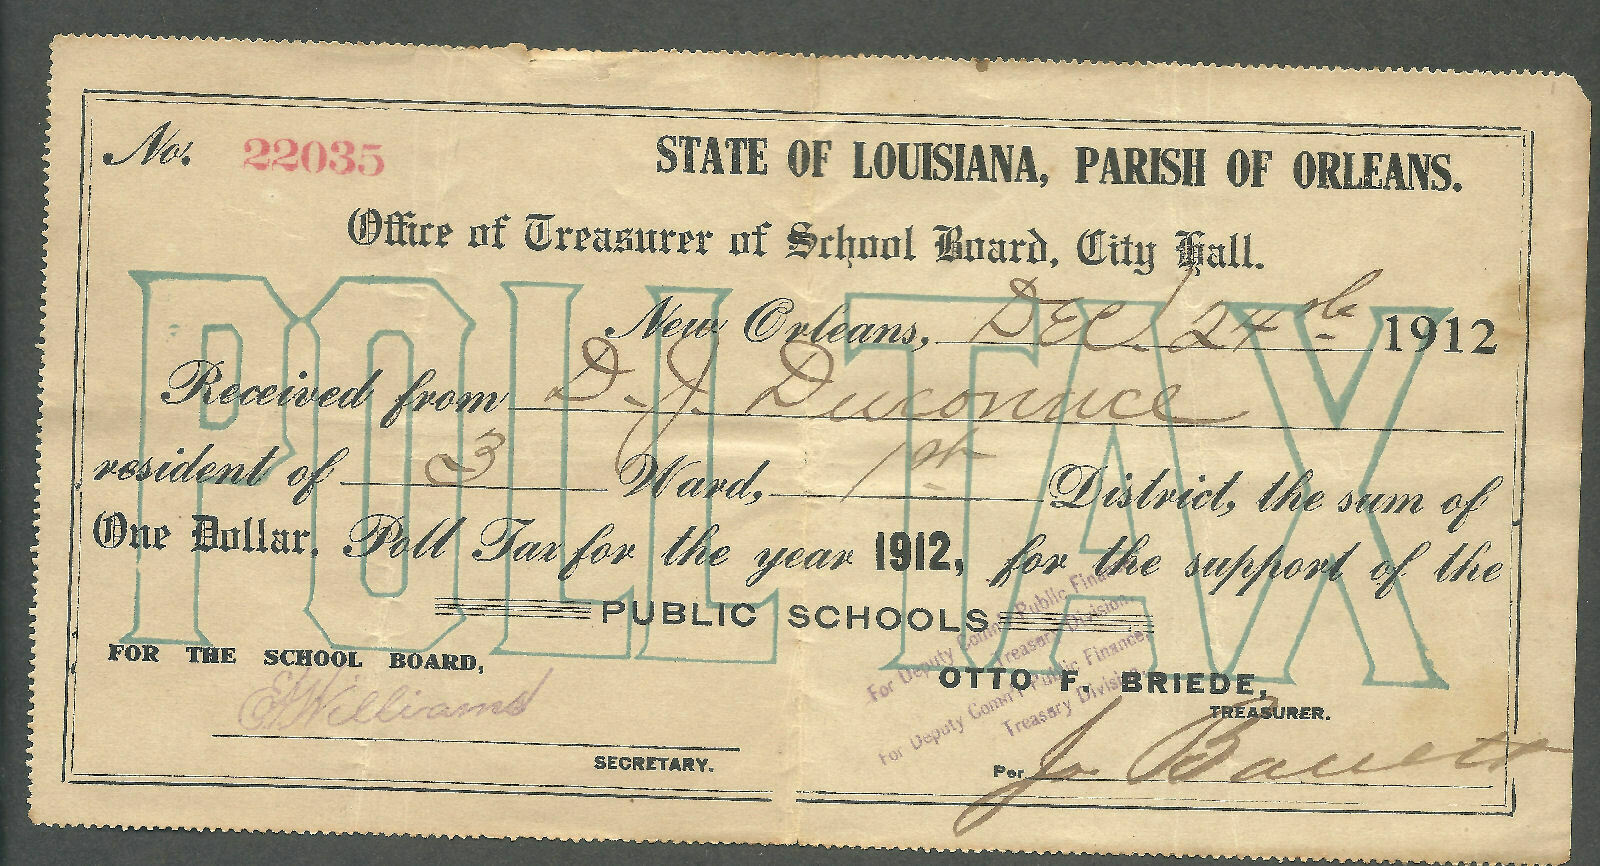 No. 22035
STATE OF LOUISIANA, PARISH OF ORLEANS.
Office of Treasurer of School Board, City Hall.
POLL TAX
New Orleans, DEC. 24th 1912
Received from D. J.
resident of 3 Ward, 1st District, the sum of
One Dollar, Poll Tax for the year 1912, for the support of the
PUBLIC SCHOOLS
FOR THE SCHOOL BOARD,
Williams
SECRETARY.
For Deputy Comm'r Public Finance
Treasury Division
For Deputy Comm'r Public Finance
Treasury Division
OTTO F. BRIEDE,
TREASURER.
Per Jo